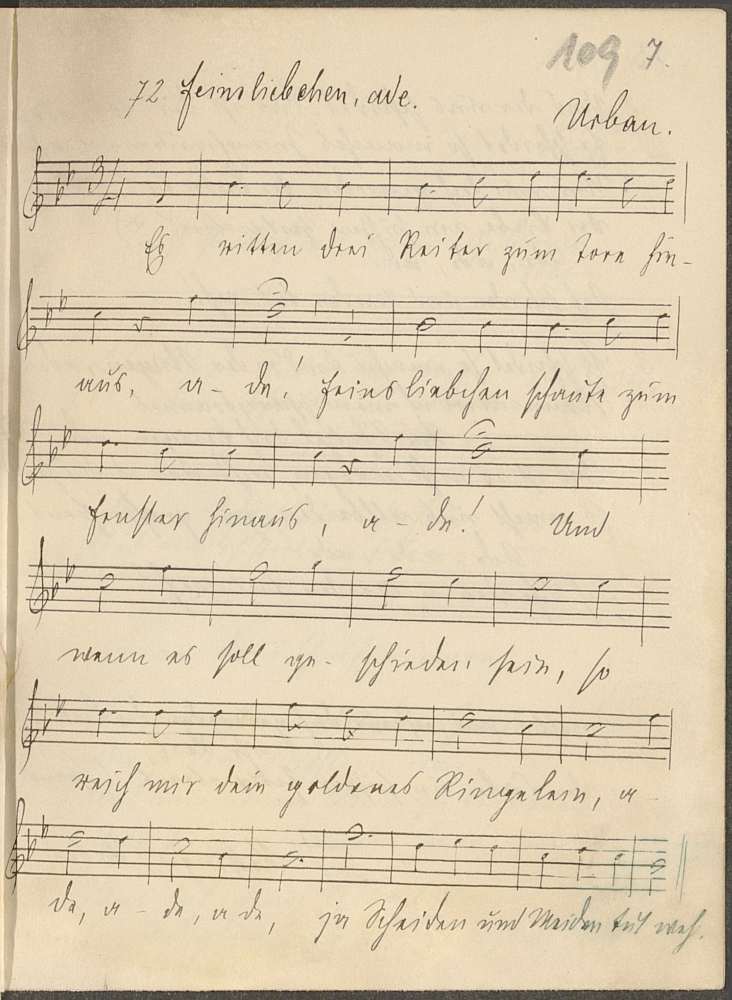 109 7.
72 Feinsliebchen, ade.
Urban.
3/4
Es ritten drei Reiter zum Tore hin-
aus, a-de! Feinsliebchen schaute zum
Fenster hinaus, a-de! Und
wenn es soll ge-schieden sein, so
reich mir dein goldenes Ringelein, a-
de, a-de, ade, ja Scheiden und Meiden tut weh.